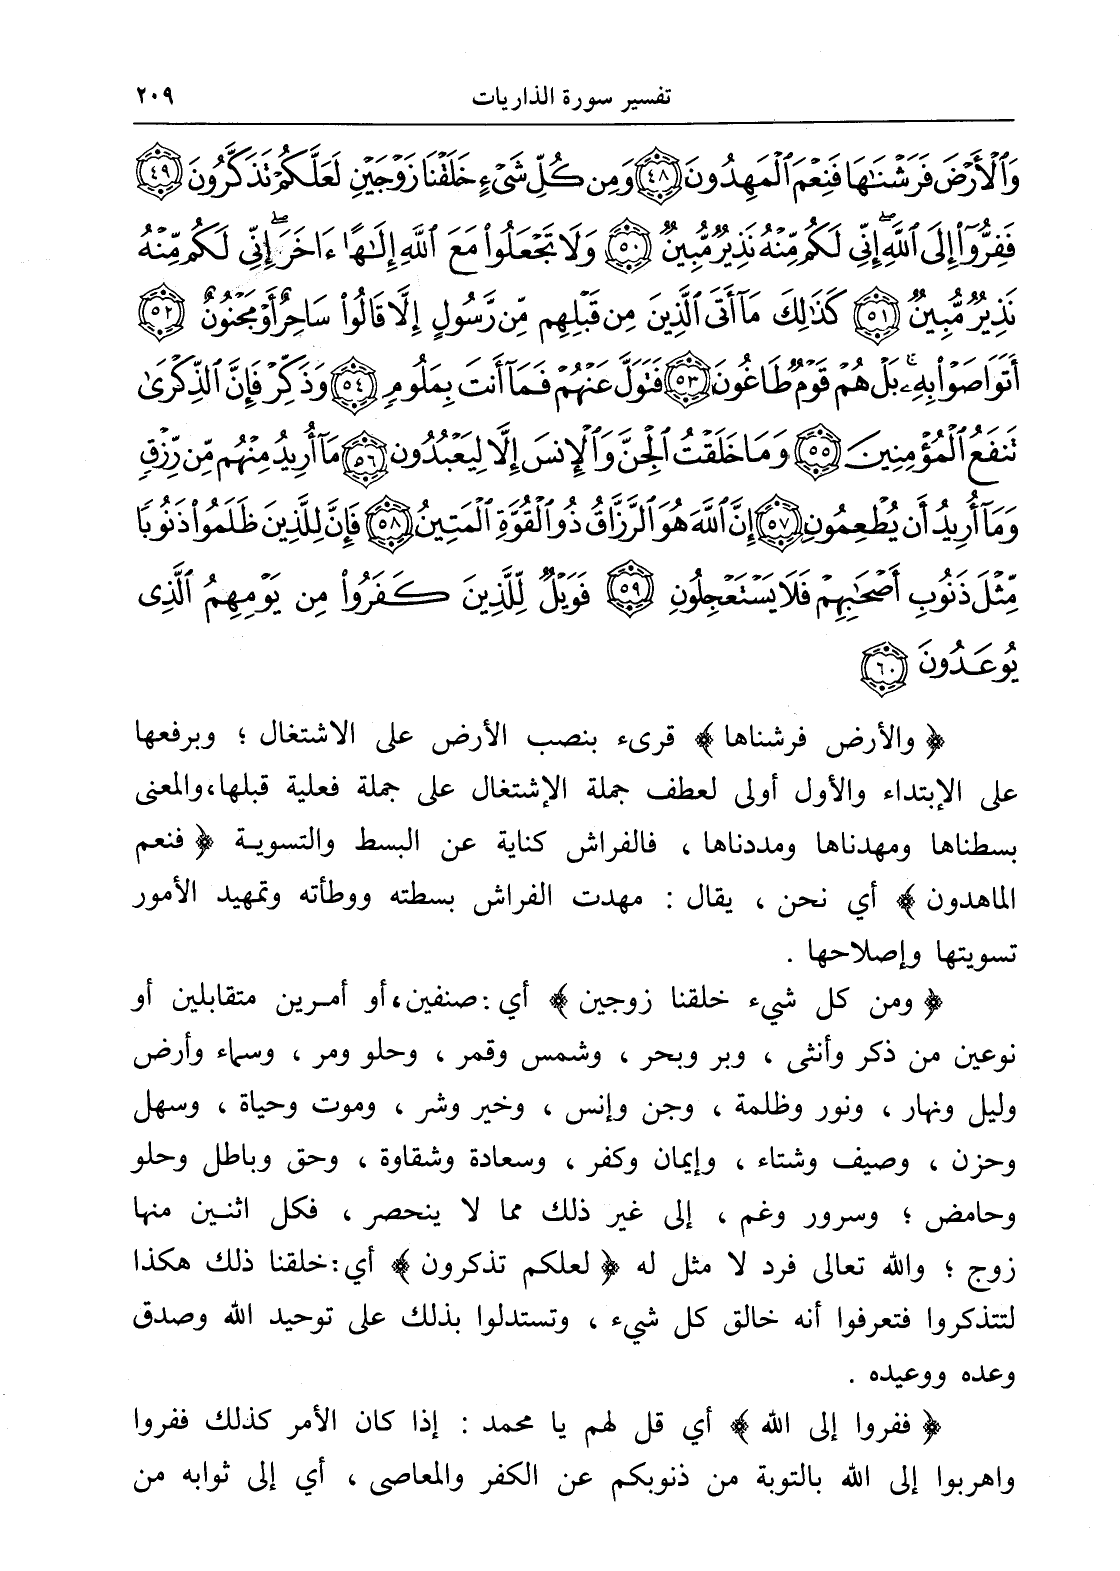 تفسير سورة الذاريات ٢٠٩
وَٱلْأَرْضَ فَرَشْنَٰهَا فَنِعْمَ ٱلْمَٰهِدُونَ ٤٨ وَمِن كُلِّ شَىْءٍ خَلَقْنَا زَوْجَيْنِ لَعَلَّكُمْ تَذَكَّرُونَ ٤٩
فَفِرُّوٓا۟ إِلَى ٱللَّهِ ۖ إِنِّى لَكُم مِّنْهُ نَذِيرٌ مُّبِينٌ ٥٠ وَلَا تَجْعَلُوا۟ مَعَ ٱللَّهِ إِلَٰهًا ءَاخَرَ ۖ إِنِّى لَكُم مِّنْهُ
نَذِيرٌ مُّبِينٌ ٥١ كَذَٰلِكَ مَآ أَتَى ٱلَّذِينَ مِن قَبْلِهِم مِّن رَّسُولٍ إِلَّا قَالُوا۟ سَاحِرٌ أَوْ مَجْنُونٌ ٥٢
أَتَوَاصَوْا۟ بِهِۦ ۚ بَلْ هُمْ قَوْمٌ طَاغُونَ ٥٣ فَتَوَلَّ عَنْهُمْ فَمَآ أَنتَ بِمَلُومٍ ٥٤ وَذَكِّرْ فَإِنَّ ٱلذِّكْرَىٰ
تَنفَعُ ٱلْمُؤْمِنِينَ ٥٥ وَمَا خَلَقْتُ ٱلْجِنَّ وَٱلْإِنسَ إِلَّا لِيَعْبُدُونِ ٥٦ مَآ أُرِيدُ مِنْهُم مِّن رِّزْقٍ
وَمَآ أُرِيدُ أَن يُطْعِمُونِ ٥٧ إِنَّ ٱللَّهَ هُوَ ٱلرَّزَّاقُ ذُو ٱلْقُوَّةِ ٱلْمَتِينُ ٥٨ فَإِنَّ لِلَّذِينَ ظَلَمُوا۟ ذَنُوبًا
مِّثْلَ ذَنُوبِ أَصْحَٰبِهِمْ فَلَا يَسْتَعْجِلُونِ ٥٩ فَوَيْلٌ لِّلَّذِينَ كَفَرُوا۟ مِن يَوْمِهِمُ ٱلَّذِى
يُوعَدُونَ ٦٠
﴿ والأرض فرشناها ﴾ قرىء بنصب الأرض على الاشتغال ؛ وبرفعها
على الإبتداء والأول أولى لعطف جملة الإشتغال على جملة فعلية قبلها، والمعنى
بسطناها ومهدناها ومددناها ، فالفراش كناية عن البسط والتسوية ﴿ فنعم
الماهدون ﴾ أي نحن ، يقال : مهدت الفراش بسطته ووطأته وتمهيد الأمور
تسويتها وإصلاحها .
﴿ ومن كل شيء خلقنا زوجين ﴾ أي : صنفين، أو أمرين متقابلين أو
نوعين من ذكر وأنثى ، وبر وبحر ، وشمس وقمر ، وحلو ومر ، وسماء وأرض
وليل ونهار ، ونور وظلمة ، وجن وإنس ، وخير وشر ، وموت وحياة ، وسهل
وحزن ، وصيف وشتاء ، وإيمان وكفر ، وسعادة وشقاوة ، وحق وباطل وحلو
وحامض ؛ وسرور وغم ، إلى غير ذلك مما لا ينحصر ، فكل اثنين منها
زوج ؛ والله تعالى فرد لا مثل له ﴿ لعلكم تذكرون ﴾ أي : خلقنا ذلك هكذا
لتتذكروا فتعرفوا أنه خالق كل شيء ، وتستدلوا بذلك على توحيد الله وصدق
وعده ووعيده .
﴿ ففروا إلى الله ﴾ أي قل لهم يا محمد : إذا كان الأمر كذلك ففروا
واهربوا إلى الله بالتوبة من ذنوبكم عن الكفر والمعاصي ، أي إلى ثوابه من